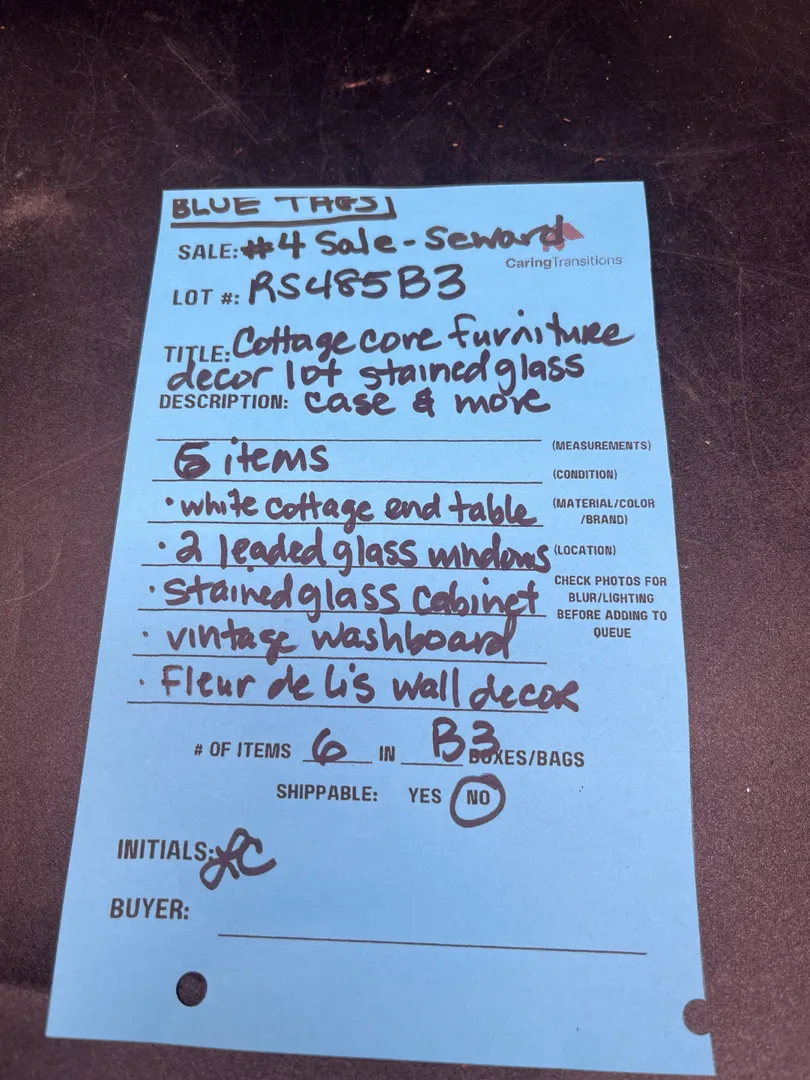 BLUE TAGS
SALE: #4 Sale - Seward
CaringTransitions
LOT #: RS485B3
TITLE: Cottage core furniture
decor lot stained glass
DESCRIPTION: case & more
(MEASUREMENTS)
items
(CONDITION)
• white cottage end table
(MATERIAL/COLOR
/BRAND)
• 2 leaded glass windows
(LOCATION)
• Stained glass cabinet
CHECK PHOTOS FOR
BLUR/LIGHTING
BEFORE ADDING TO
QUEUE
• vintage washboard
• Fleur de lis wall decor
# OF ITEMS 6 IN B3 BOXES/BAGS
SHIPPABLE: YES NO
INITIALS: LC
BUYER: